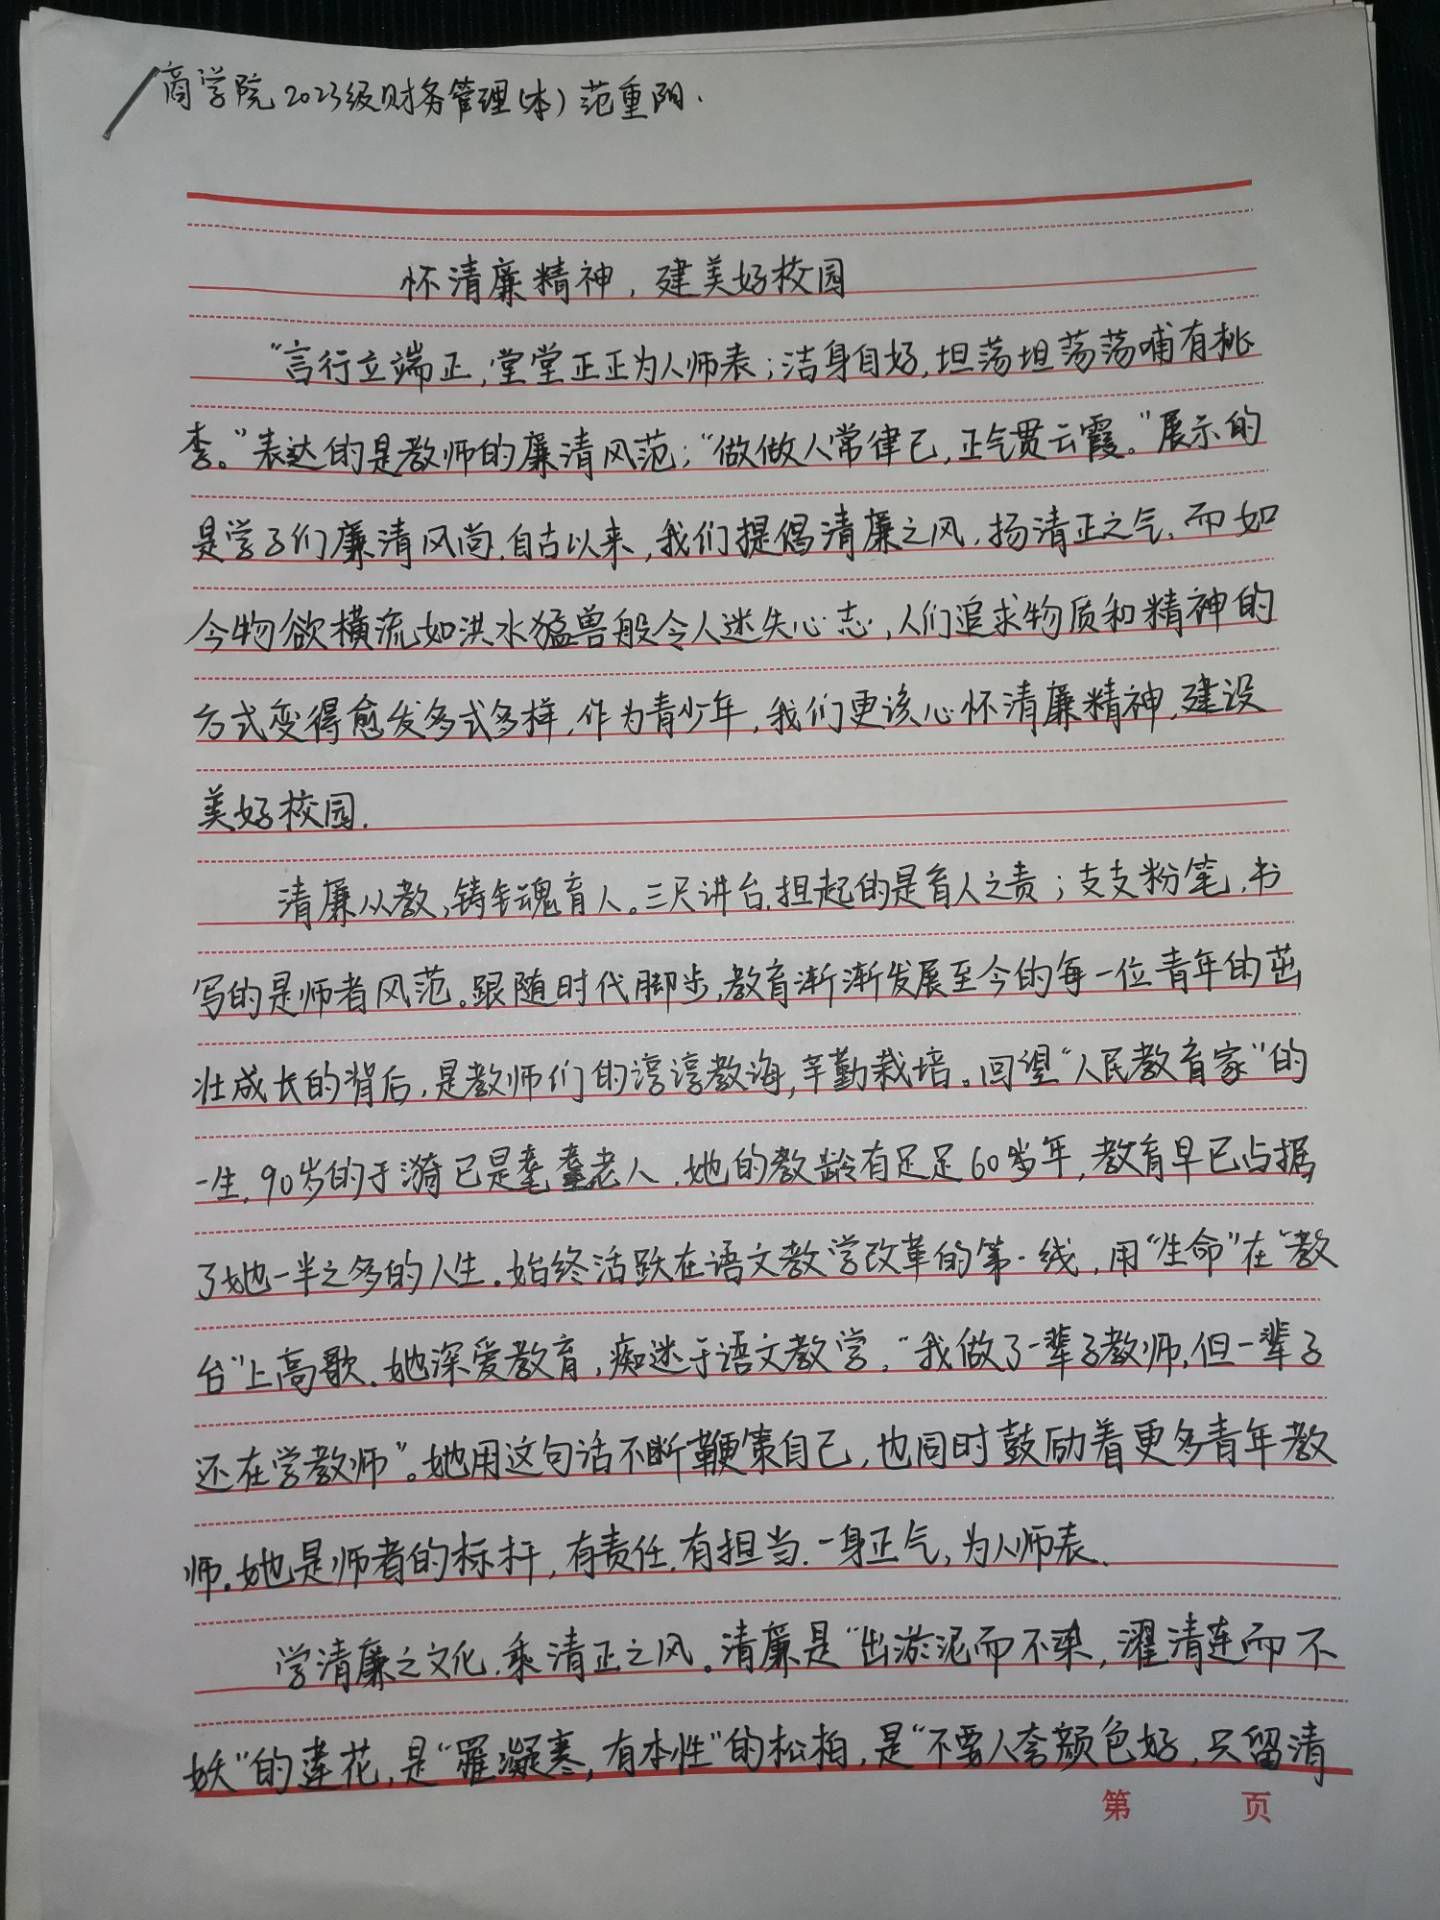 商学院2023级财务管理(本)范重阳.
怀清廉精神，建美好校园
“言行立端正，堂堂正正为人师表；洁身自好，坦荡坦荡荡哺有桃
李。”表达的是教师的廉清风范；“做做人常律己，正气贯云霞。”展示的
是学子们廉清风尚.自古以来，我们提倡清廉之风，扬清正之气，而如
今物欲横流如洪水猛兽般令人迷失心志，人们追求物质和精神的
方式变得愈发多式多样，作为青少年，我们更该心怀清廉精神，建设
美好校园.
清廉从教，铸魂育人。三尺讲台，担起的是育人之责；支支粉笔，书
写的是师者风范。跟随时代脚步，教育渐渐发展至今的每一位青年的茁
壮成长的背后，是教师们的谆谆教诲，辛勤栽培。回望“人民教育家”的
一生，90岁的于漪已是耄耋老人，她的教龄有足足60岁年，教育早已占据
了她一半之多的人生.始终活跃在语文教学改革的第一线，用“生命”在“教
台”上高歌.她深爱教育，痴迷于语文教学，“我做了一辈子教师，但一辈子
还在学教师”。她用这句话不断鞭策自己，也同时鼓励着更多青年教
师.她是师者的标杆，有责任.有担当.一身正气，为人师表.
学清廉之文化，乘清正之风。清廉是“出淤泥而不染，濯清涟而不
妖”的莲花，是“罹凝寒，有本性”的松柏，是“不要人夸颜色好，只留清
第 页